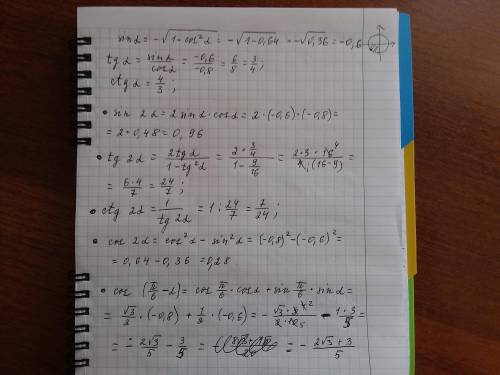 sin α = -√(1-cos²α) = -√(1-0,64) = -√0,36 = -0,6
tg α = sin α/cos α = -0,6/-0,8 = 6/8 = 3/4;
ctg α = 4/3;
• sin 2α = 2 sin α · cos α = 2 · (-0,6) · (-0,8) =
= 2 · 0,48 = 0,96
• tg 2α = 2tg α/(1-tg²α) = (2 · 3/4)/(1 - 9/16) = =
= 6·4/7 = 24/7;
• ctg 2α = 1/tg 2α = 1 : 24/7 = 7/24;
• cos 2α = cos²α - sin²α = (-0,8)² - (-0,6)² =
= 0,64 - 0,36 = 0,28
• cos (π/6 - α) = cos π/6 · cos α + sin π/6 · sin α =
= √3/2 · (-0,8) + 1/2 · (-0,6) = =
= - 2√3/5 - 3/5 = = - (2√3 + 3)/5